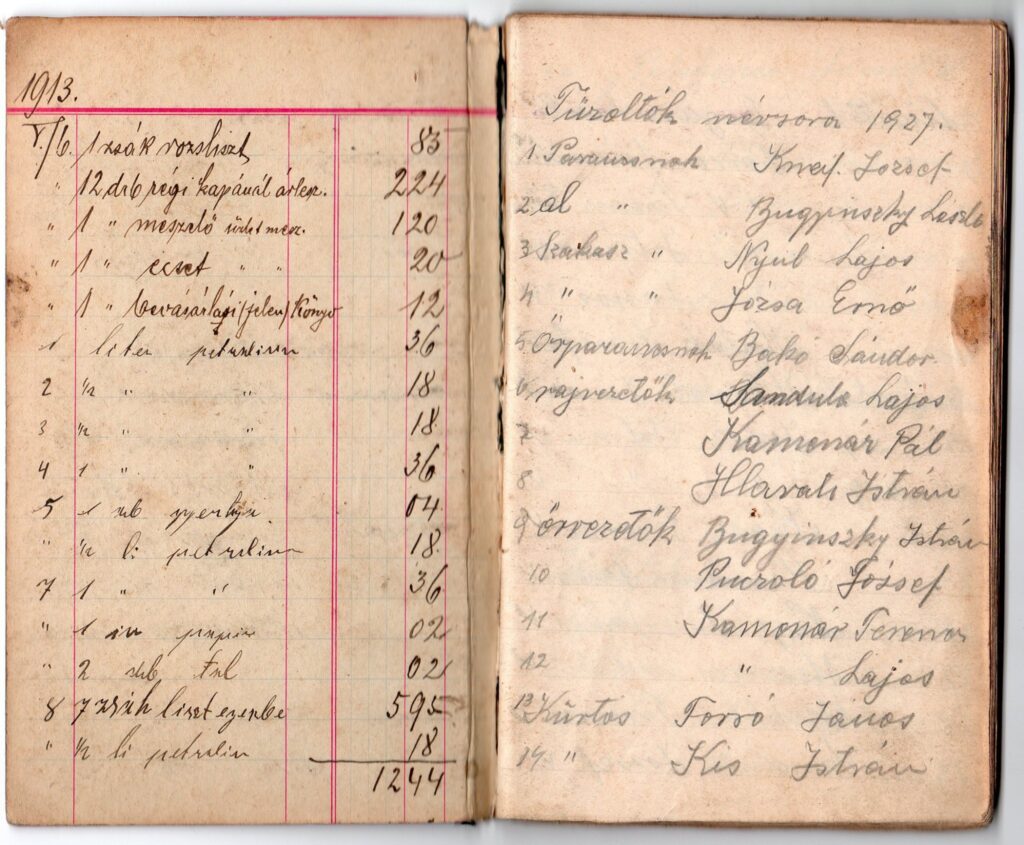 1913.
V./6. 1 zsák rozsliszt 83
" 12 drb régi kapánál árlesz. 224
" 1 " meszelő üdlet mesz. 120
" 1 " ecset " " 20
" 1 " bevásárlási (jelen) Könyv 12
1 liter petrolium 36
2 ½ " " 18
3 ½ " " 18
4 1 " " 36
5 1 gyertya 04
" ½ li petrolium 18
7 1 " " 36
" 1 papir 02
" 2 02
8 7 zsák liszt 595
" ½ li petrolium 18
1244
Tűzoltók névsora 1927.
1 Parancsnok József
2 al " Bugyinszky László
3 Szakasz " Nyúl Lajos
4 " " Józsa Ernő
5 Őrparancsnok Bakó Sándor
6 rajvezetők Sandula Lajos
7 Kamenár Pál
8 István
9 őrvezetők Bugyinszky István
10 József
11 Kamenár Ferenc
12 " Lajos
13 Kürtös Forró János
14 " Kis István